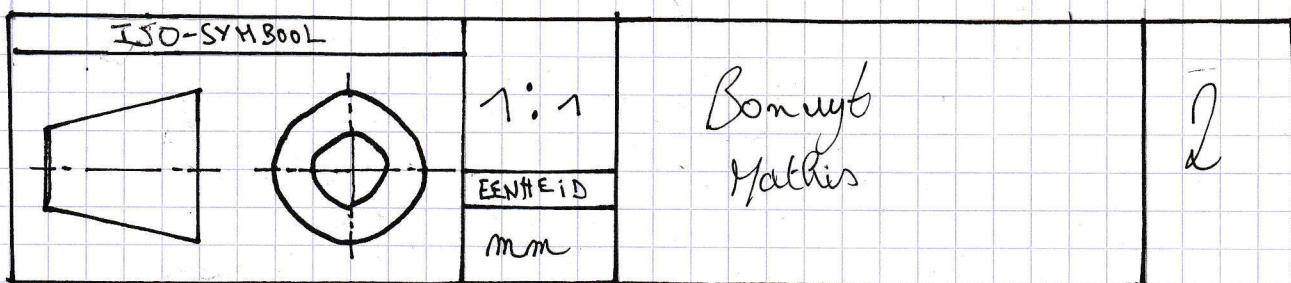 ISO-SYMBOOL
1:1
EENHEID
mm
Bonuyt
Mathis
2